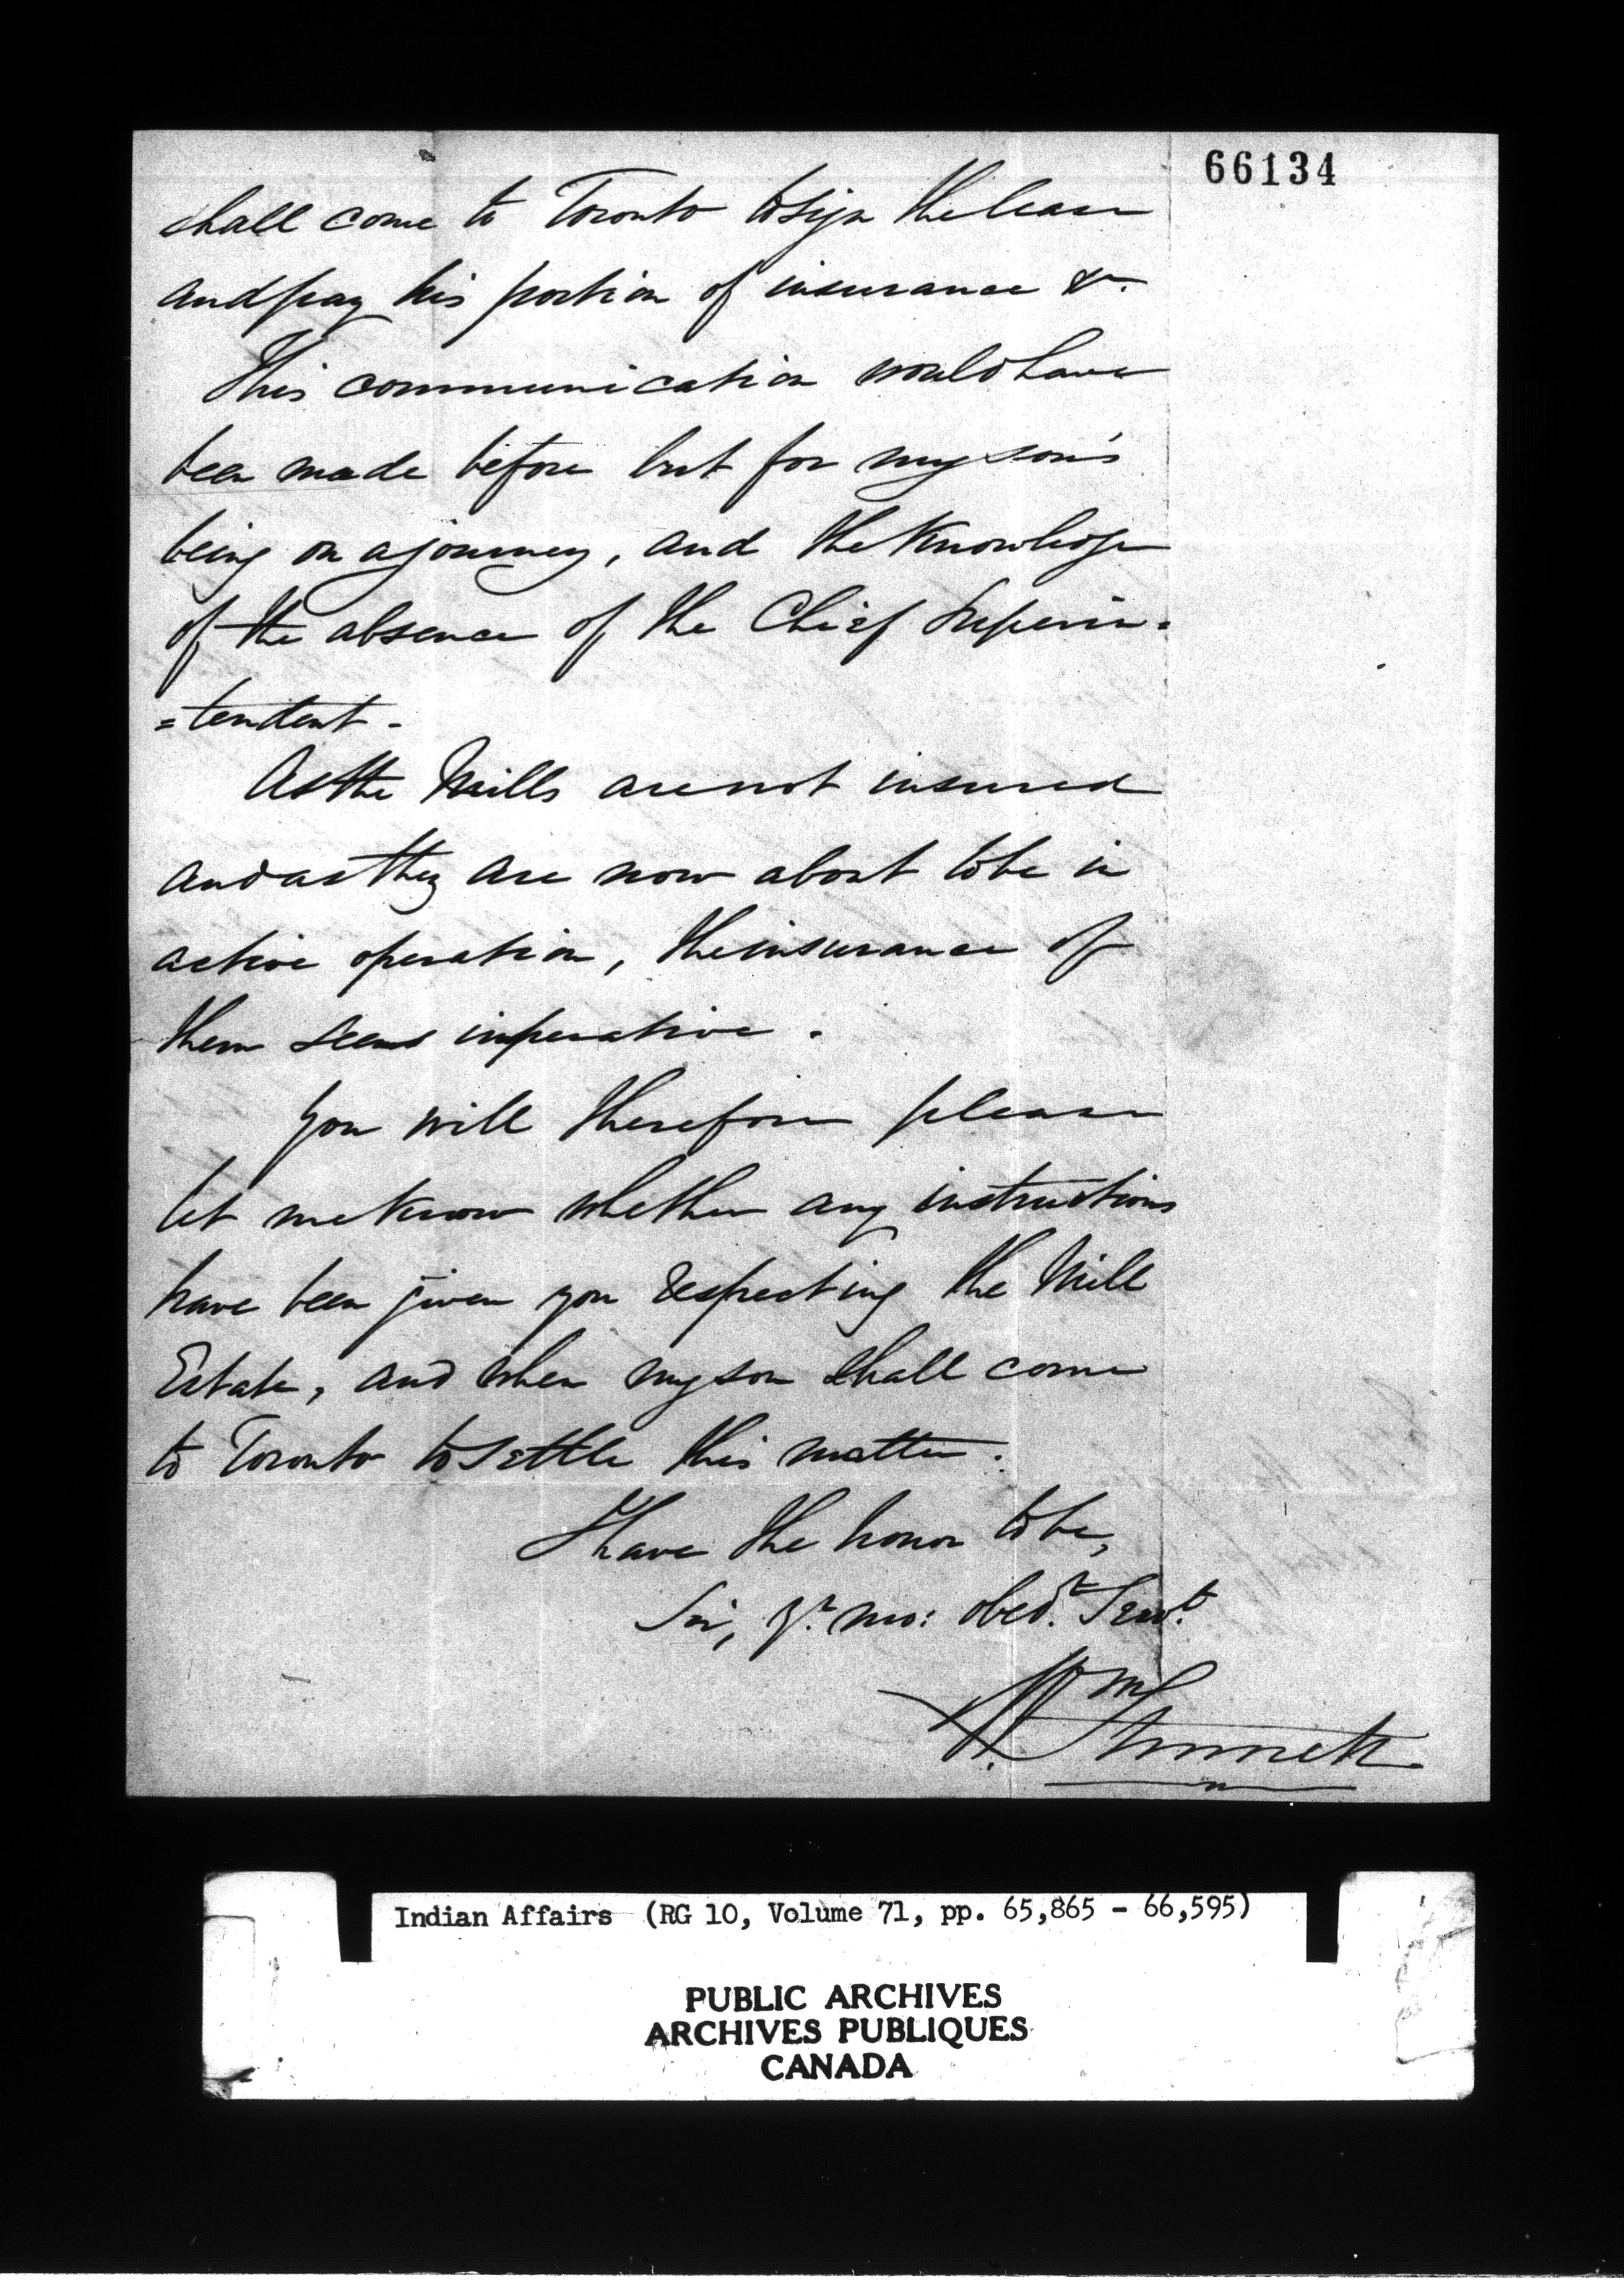 66134
shall come to Toronto to sign the lease
and pay his portion of insurance &c.
This communication would have
been made before but for my son's
being on a journey, and the knowledge
of the absence of the Chief Superin=
=tendent -
As the Mills are not insured
and as they are now about to be in
active operation, the insurance of
them seems imperative.
You will therefore please
let me know whether any instructions
have been given you respecting the Mill
Estate, and when my son shall come
to Toronto to settle this matter.
I have the honor to be,
Sir, yr. mo: obedt. Servt.
Wm
Indian Affairs (RG 10, Volume 71, pp. 65,865 - 66,595)
PUBLIC ARCHIVES
ARCHIVES PUBLIQUES
CANADA